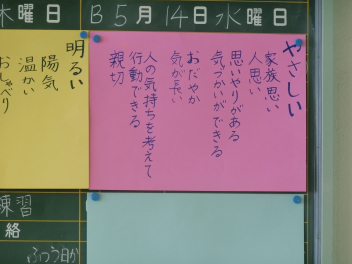 木曜日
B 5月14日水曜日
やさしい
家族思い
人思い
思いやりがある
気づかいができる
おだやか
気が長い
人の気持ちを考えて
行動できる
親切
明るい
陽気
温かい
おしゃべり
練習
絡
ふつう日か